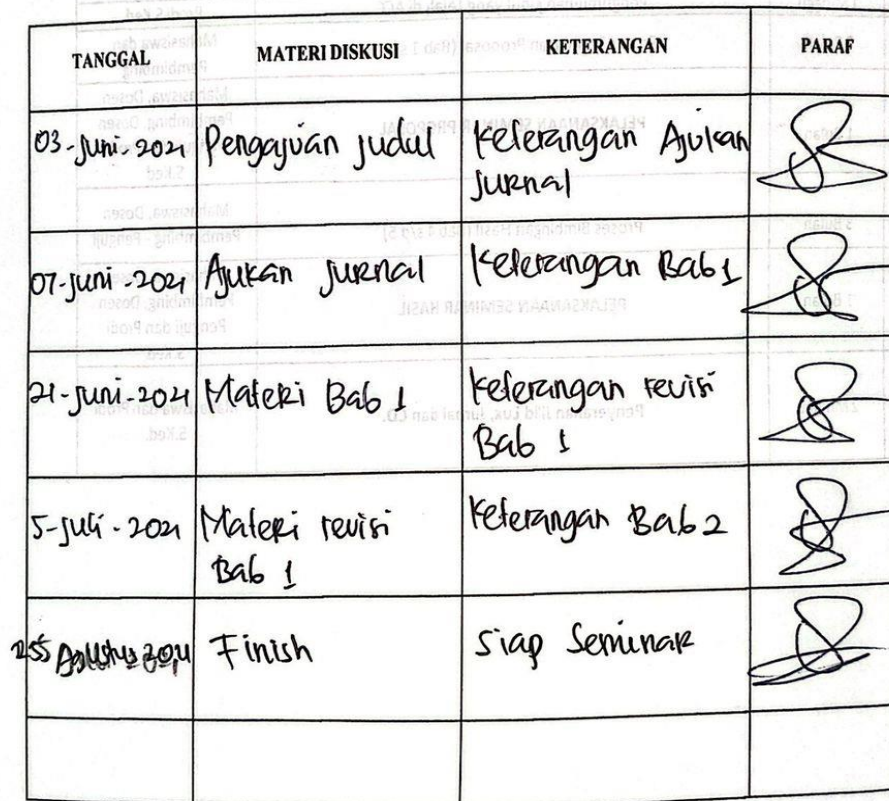 TANGGAL MATERI DISKUSI KETERANGAN PARAF
03-Juni-2021 Pengajuan Judul Keterangan Ajukan
Jurnal
07-Juni-2021 Ajukan Jurnal Keterangan Bab 1
21-Juni-2021 Materi Bab 1 Keterangan revisi
Bab 1
5-Juli-2021 Materi revisi Keterangan Bab 2
Bab 1
Agustus Finish Siap Seminar